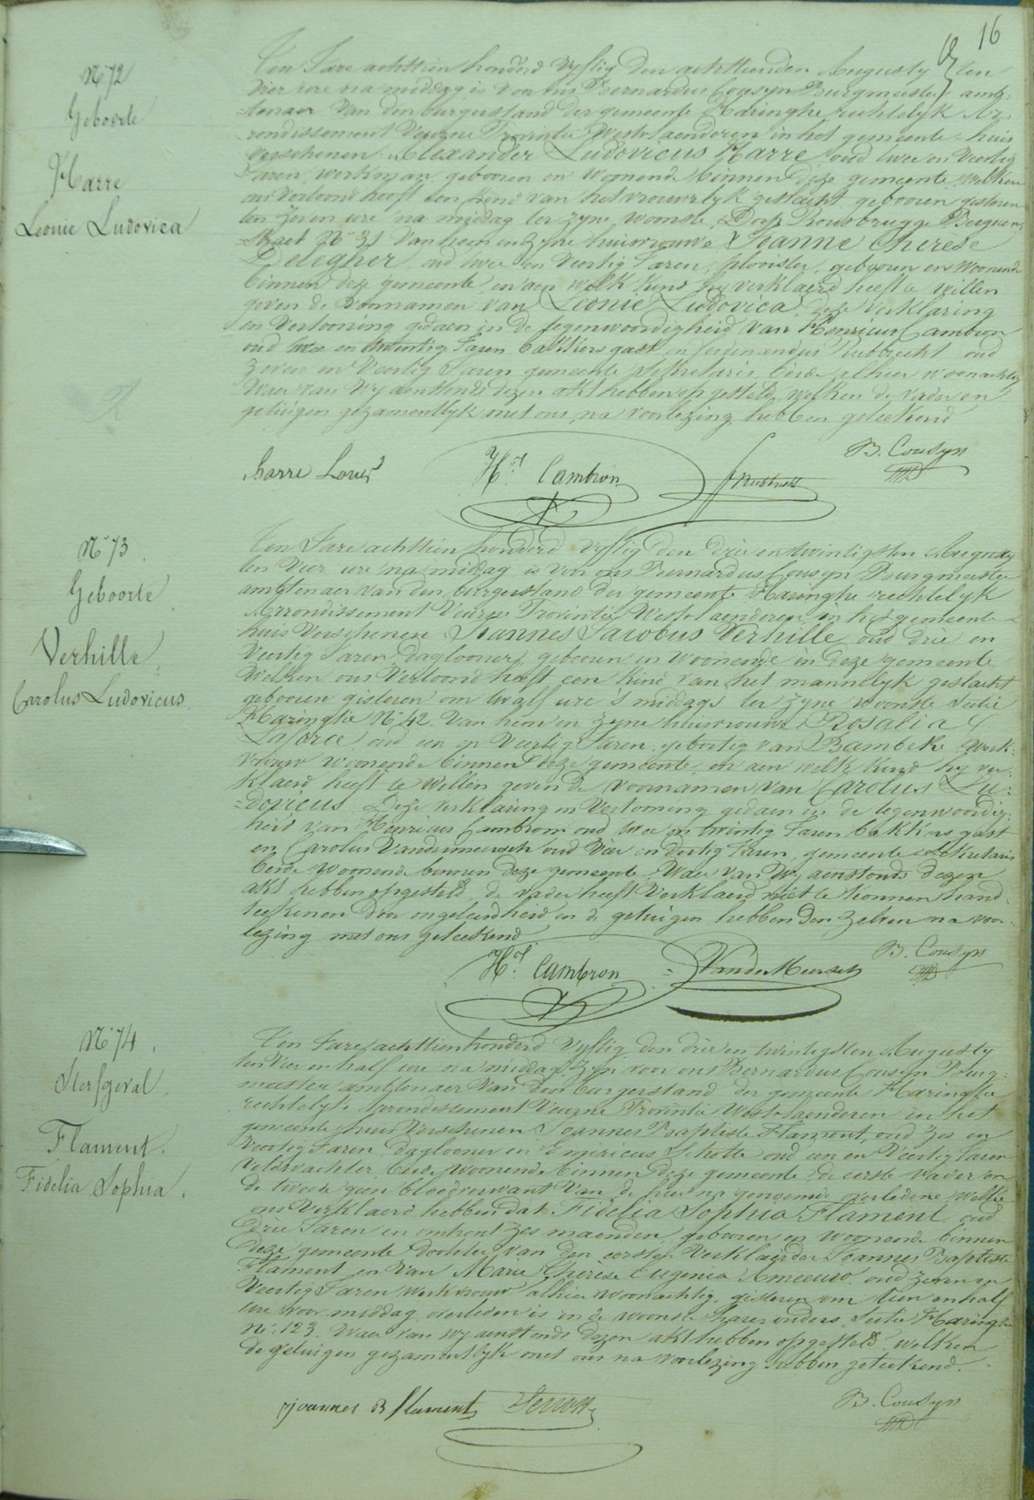 16
N° 72
Geboorte
Harre
Leonie Ludovica
Ten Jare achttien honderd vyftig den achttienden Augusty ten
vier ure na middag is voor ons Bernardus Cousyn Burgmeester amb-
tenaer van den burgerstand der gemeente Haringhe rechtelyk Ar-
rondissement Veurne Provintie Westvlaenderen in het gemeente huis
verschenen Alexander Ludovicus Harre oud twee en veertig
Jaren, werkman geboren en woonende binnen deze gemeente, welken
ons vertoond heeft een kind van het vrouwelyk geslacht geboren gisteren
ten zeven ure na middag ter zyne woonste, Dorp Rousbrugge
straet N° 31 van hem en zyne huisvrouwe Jeanne Therese
oud twee en veertig Jaren, geboren en woonende
binnen deze gemeente, en aen welk kind hy verklaerd heeft te willen
geven de voornamen van Leonie Ludovica. Deze verklaring
en vertooning gedaen in de tegenwoordigheid van Henricus Cambron
oud twee en twintig Jaren bakkers gast en oud
en veertig Jaren gemeente sekretaris beide alhier woonachtig
Waer van wy aenstonds dezen akt hebben opgesteld, welken de vader en
getuigen gezamentlyk met ons na voorlezing hebben geteekend
Harre Louis
H.ri Cambron
B. Cousyn
N° 73.
Geboorte
Verhille
Carolus Ludovicus
Ten Jare achttien honderd vyftig den drie en twintigsten Augusty
ten vier ure na middag is voor ons Bernardus Cousyn Burgmeester
ambtenaer van den burgerstand der gemeente Haringhe rechtelyk
Arrondissement Veurne Provintie Westvlaenderen, in het gemeente
huis verschenen Joannes Jacobus Verhille oud drie en
veertig Jaren daglooner, geboren en woonende in deze gemeente
welken ons vertoond heeft een kind van het mannelyk geslacht
geboren gisteren om twaelf ure 's middags ter zyne woonste Sectie
Haringhe N° 42 van hem en zyne huisvrouwe Rosalia
Laforce oud een en veertig Jaren geboortig van Bambeke werk-
vrouw woonende binnen deze gemeente, en aen welk kind hy ver-
klaerd heeft te willen geven de voornamen van Carolus Lu-
dovicus. Deze verklaring en vertooning gedaen in de tegenwoordig-
heid van Henricus Cambron oud twee en twintig Jaren bakkers gast
en Carolus Vandermeersch oud vier en dertig Jaren, gemeente sekretaris
beide woonende binnen deze gemeente. Waer van wy aenstonds dezen
akt hebben opgesteld, de vader heeft verklaerd niet te konnen hand-
teekenen door ongeleerdheid en de getuigen hebben den zelven na voor-
lezing met ons geteekend
H.ri Cambron
VanderMeersch
B. Cousyn
N° 74.
Sterfgeval
Flament.
Fidelia Sophia.
Ten Jare achttienhonderd vyftig den drie en twintigsten Augusty
ten vier en half ure na middag zyn voor ons Bernardus Cousyn Bourg-
meester ambtenaer van den burgerstand der gemeente Haringhe
rechtelyk Arrondissement Veurne Provintie Westvlaenderen in het
gemeente huis verschenen Joannes Baptiste Flament, oud zes en
veertig Jaren, daglooner en oud een en veertig Jaren
veldwachter beide woonende binnen deze gemeente de eerste vader en
de tweede geen bloedverwant van de hier na genoemde overledene welke
ons verklaerd hebben dat Fidelia Sophia Flament oud
drie Jaren en omtrent zes maenden, geboren en woonende binnen
deze gemeente dochter van den eersten verklaerder Joannes Baptiste
Flament en van Marie Therese Eugenia Ameeuw oud zeven en
veertig Jaren werkvrouw alhier woonachtig, gisteren om tien en half
ure voor middag overleden is in de woonste harer ouders, Sectie Haringhe
N° 123. Waer van wy aenstonds dezen akt hebben opgesteld, welken
de getuigen gezamentlyk met ons na voorlezing hebben geteekend.
Joannes B flament
B. Cousyn